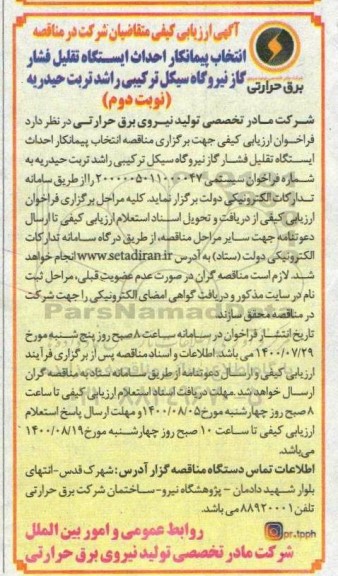 آگهی ارزیابی کیفی متقاضیان شرکت در مناقصه
انتخاب پیمانکار احداث ایستگاه تقلیل فشار
گاز نیروگاه سیکل ترکیبی راشد تربت حیدریه
(نوبت دوم)
برق حرارتی
شرکت مادر تخصصی تولید نیروی برق حرارتی در نظر دارد
فراخوان ارزیابی کیفی جهت برگزاری مناقصه انتخاب پیمانکار احداث
ایستگاه تقلیل فشار گاز نیروگاه سیکل ترکیبی راشد تربت حیدریه به
شماره فراخوان سیستمی ۲۰۰۰۰۰۵۰۱۱۰۰۰۰۴۷ را از طریق سامانه
تدارکات الکترونیکی دولت برگزار نماید. کلیه مراحل برگزاری فراخوان
ارزیابی کیفی از دریافت و تحویل اسناد استعلام ارزیابی کیفی تا ارسال
دعوتنامه جهت سایر مراحل مناقصه، از طریق درگاه سامانه تدارکات
الکترونیکی دولت (ستاد) به آدرس www.setadiran.ir انجام خواهد
شد. لازم است مناقصه گران در صورت عدم عضویت قبلی، مراحل ثبت
نام در سایت مذکور و دریافت گواهی امضای الکترونیکی را جهت شرکت
در مناقصه محقق سازند.
تاریخ انتشار فراخوان در سامانه ساعت ۸ صبح روز پنج شنبه مورخ
۱۴۰۰/۰۷/۲۹ می باشد. اطلاعات و اسناد مناقصه پس از برگزاری فرآیند
ارزیابی کیفی و ارسال دعوتنامه از طریق سامانه ستاد به مناقصه گران
ارسال خواهد شد. مهلت دریافت اسناد استعلام ارزیابی کیفی تا ساعت
۸ صبح روز چهارشنبه مورخ ۱۴۰۰/۰۸/۰۵ و مهلت ارسال پاسخ استعلام
ارزیابی کیفی تا ساعت ۱۰ صبح روز چهارشنبه مورخ ۱۴۰۰/۰۸/۱۹
می باشد.
اطلاعات تماس دستگاه مناقصه گزار آدرس: شهرک قدس-انتهای
بلوار شهید دادمان - پژوهشگاه نیرو-ساختمان شرکت برق حرارتی
تلفن ۸۸۹۲۰۰۰۱ می باشد.
pr.tpph
روابط عمومی و امور بین الملل
شرکت مادر تخصصی تولید نیروی برق حرارتی